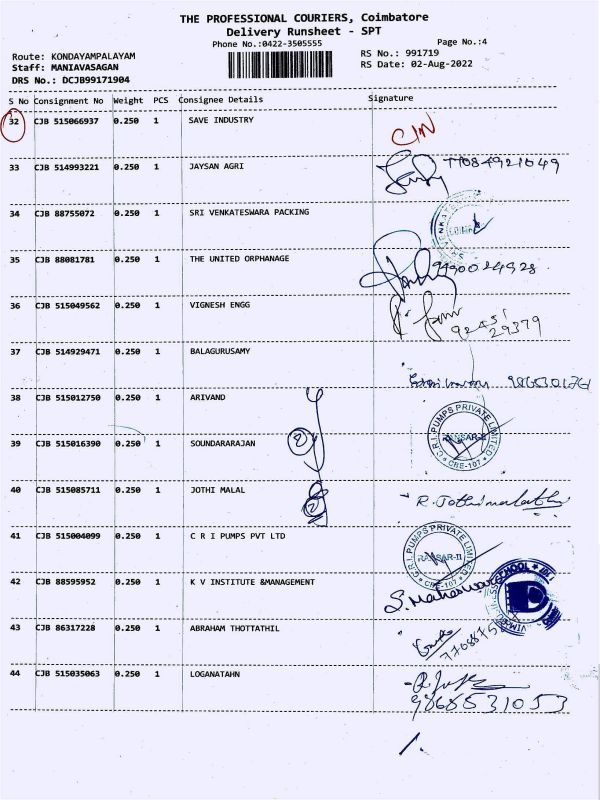 THE PROFESSIONAL COURIERS, Coimbatore
Delivery Runsheet - SPT
Phone No.:0422-3505555
Page No.:4
Route: KONDAYAMPALAYAM
Staff: MANIAVASAGAN
DRS No.: DCJB99171904
RS No.: 991719
RS Date: 02-Aug-2022
S No Consignment No Weight PCS Consignee Details Signature
32 CJB 515066937 0.250 1 SAVE INDUSTRY
33 CJB 514993221 0.250 1 JAYSAN AGRI 77084921049
34 CJB 88755072 0.250 1 SRI VENKATESWARA PACKING
35 CJB 88081781 0.250 1 THE UNITED ORPHANAGE
36 CJB 515049562 0.250 1 VIGNESH ENGG
37 CJB 514929471 0.250 1 BALAGURUSAMY
38 CJB 515012750 0.250 1 ARIVAND
C.R.I. PUMPS PRIVATE LIMITED
CBE-107
39 CJB 515016390 0.250 1 SOUNDARARAJAN
40 CJB 515085711 0.250 1 JOTHI MALAL R. Jothimalathi
41 CJB 515004099 0.250 1 C R I PUMPS PVT LTD
C.R.I. PUMPS PRIVATE LIMITED
RANSAR-II
CBE-107
42 CJB 88595952 0.250 1 K V INSTITUTE &MANAGEMENT S. Maheswar
43 CJB 86317228 0.250 1 ABRAHAM THOTTATHIL
44 CJB 515035063 0.250 1 LOGANATAHN
9865531053